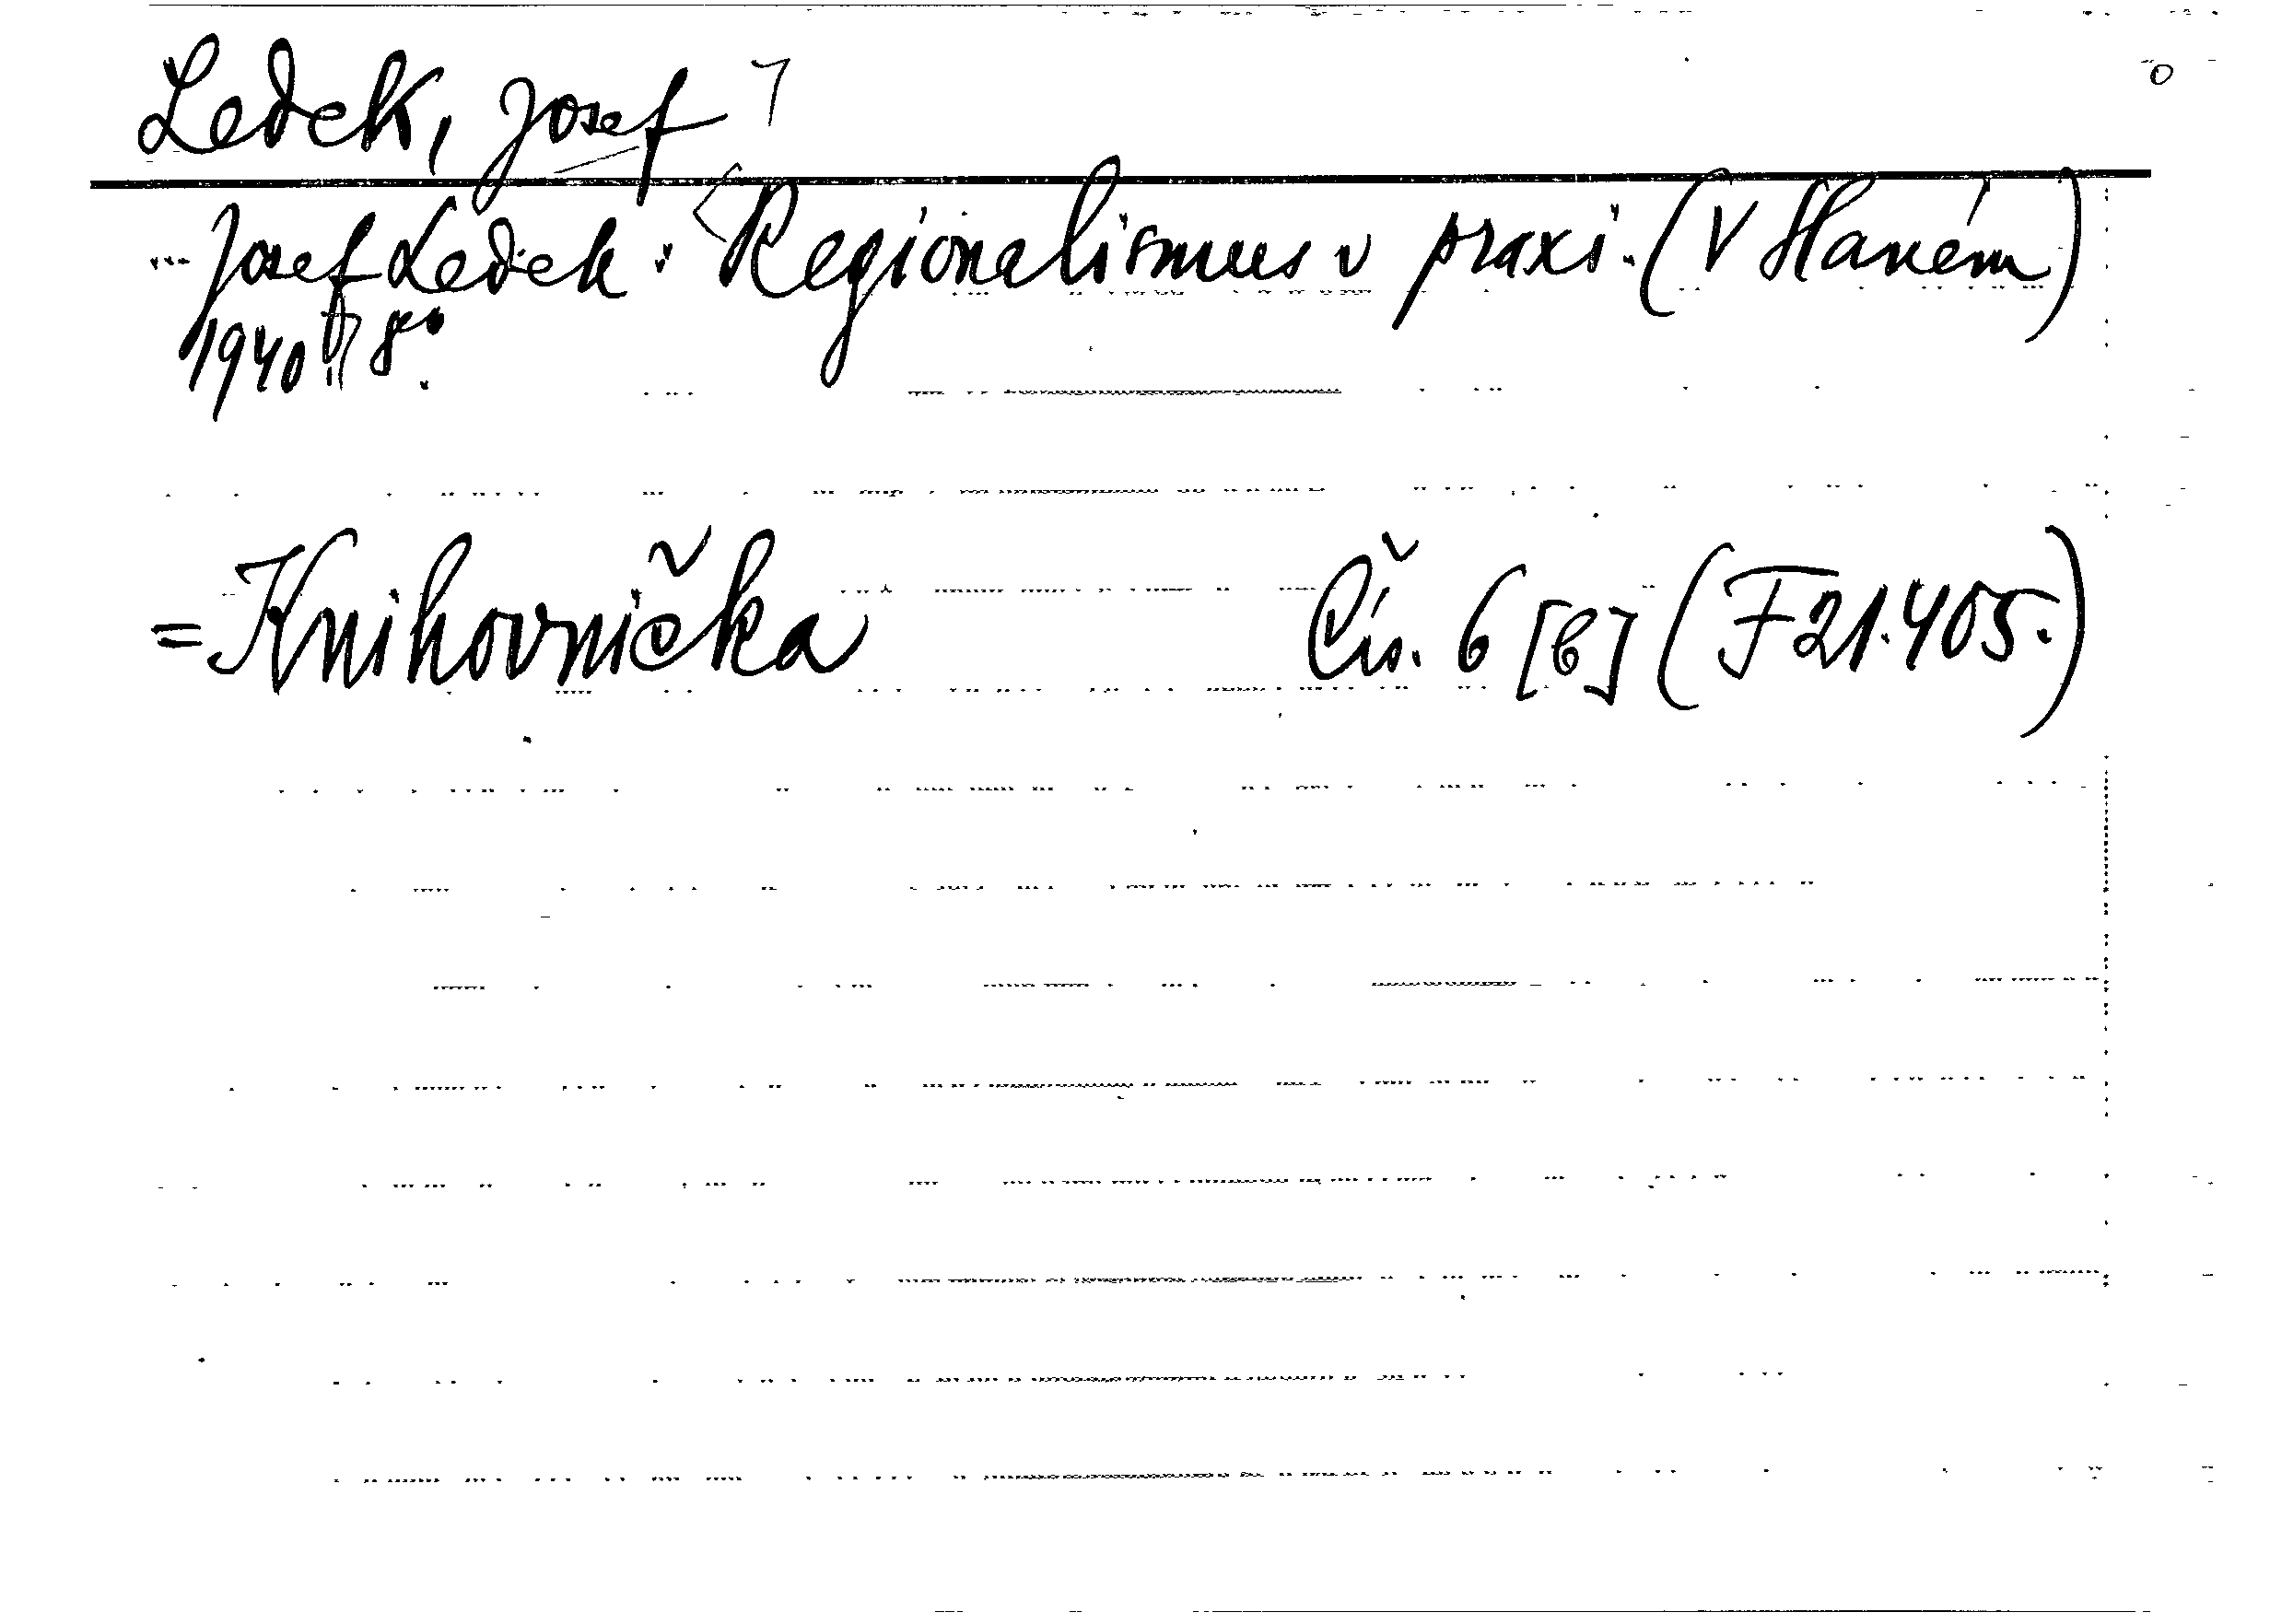 Ledek, Josef
Josef Ledek: Regionalismus v praxi. (V Slaném)
1940 8°.
= Knihovnička Čís. 6 [b] (F 21.405.)